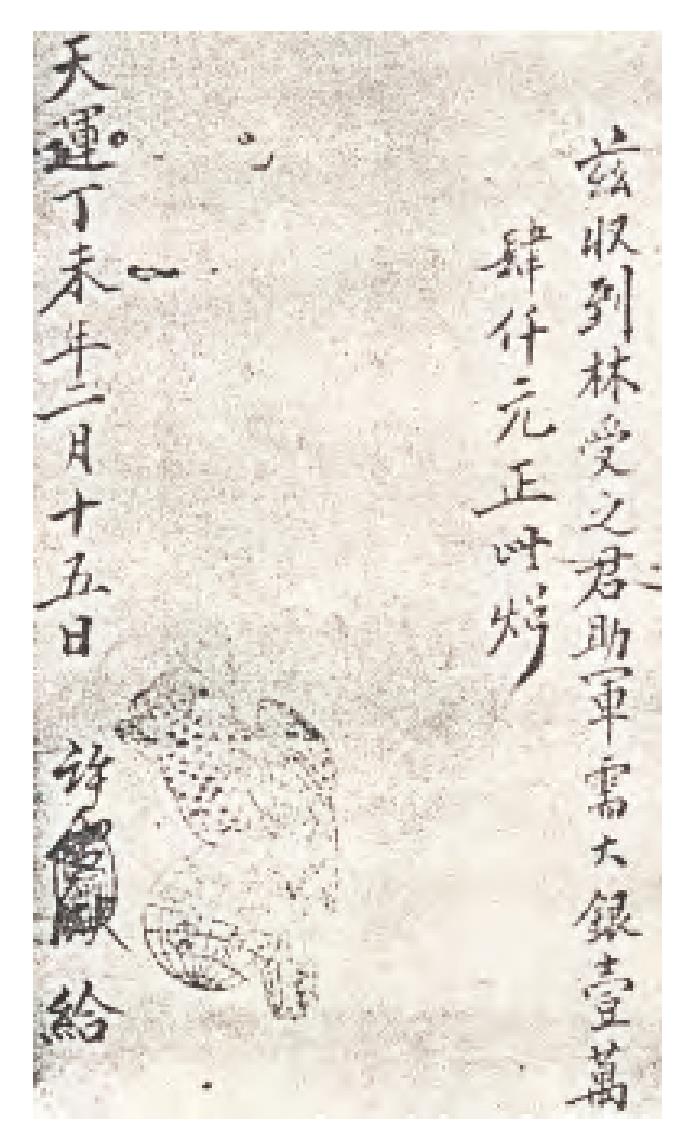 茲收列林受之君助軍需大銀壹萬
肆仟元正此炤
天運丁未年二月十五日 許雪湫 給